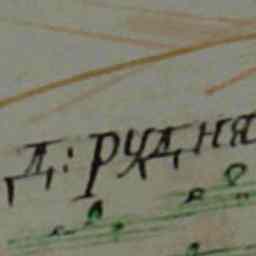 Д: РУДНЯ